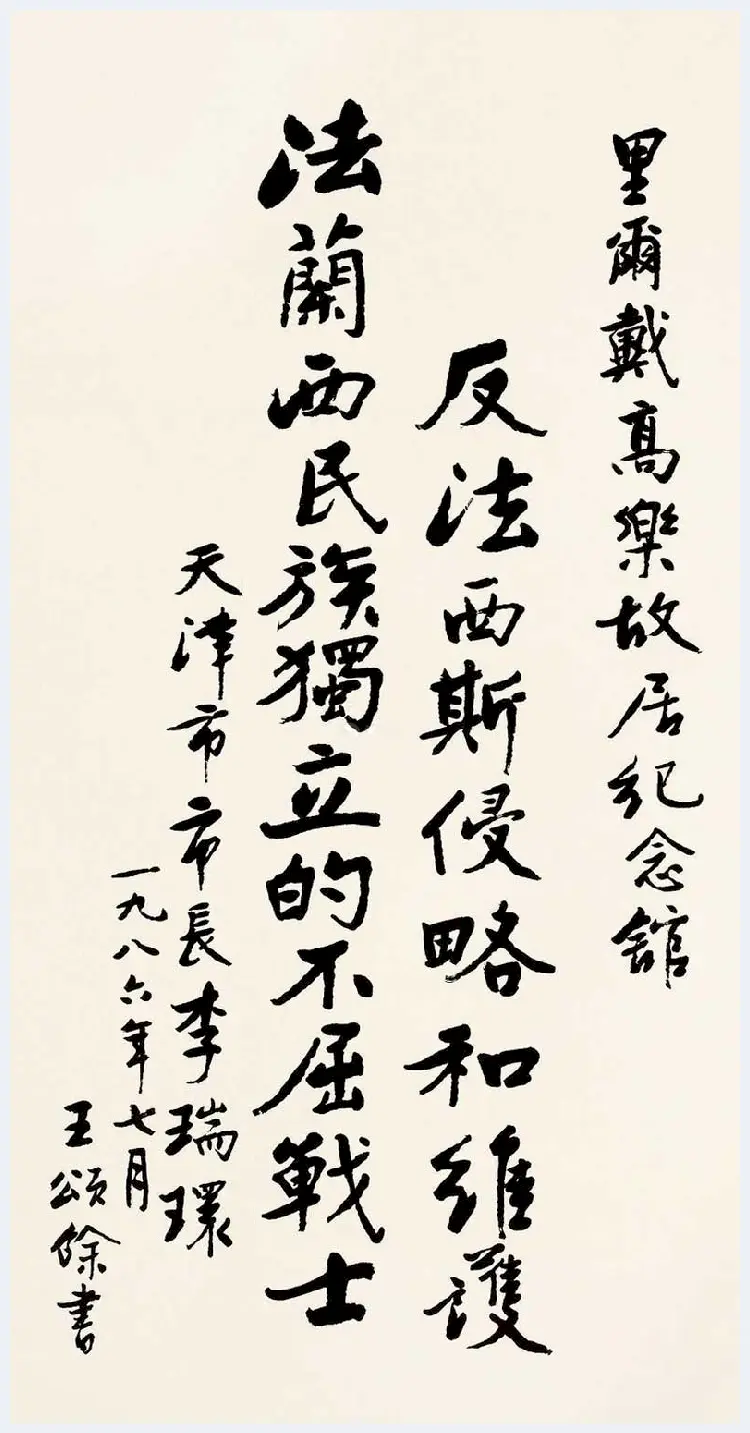 里爾戴高樂故居紀念館
反法西斯侵略和維護
法蘭西民族獨立的不屈戰士
天津市市長李瑞環
一九八六年七月
王頌餘書